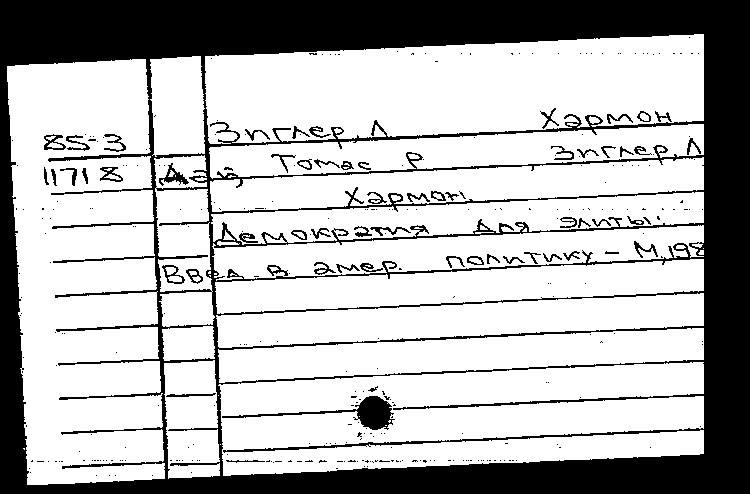 85-3 Зиглер, Л Хармон
11718 Дай, Томас Р , Зиглер, Л
Хармон.
Демократия для элиты:
Введ. в амер. политику - М, 198